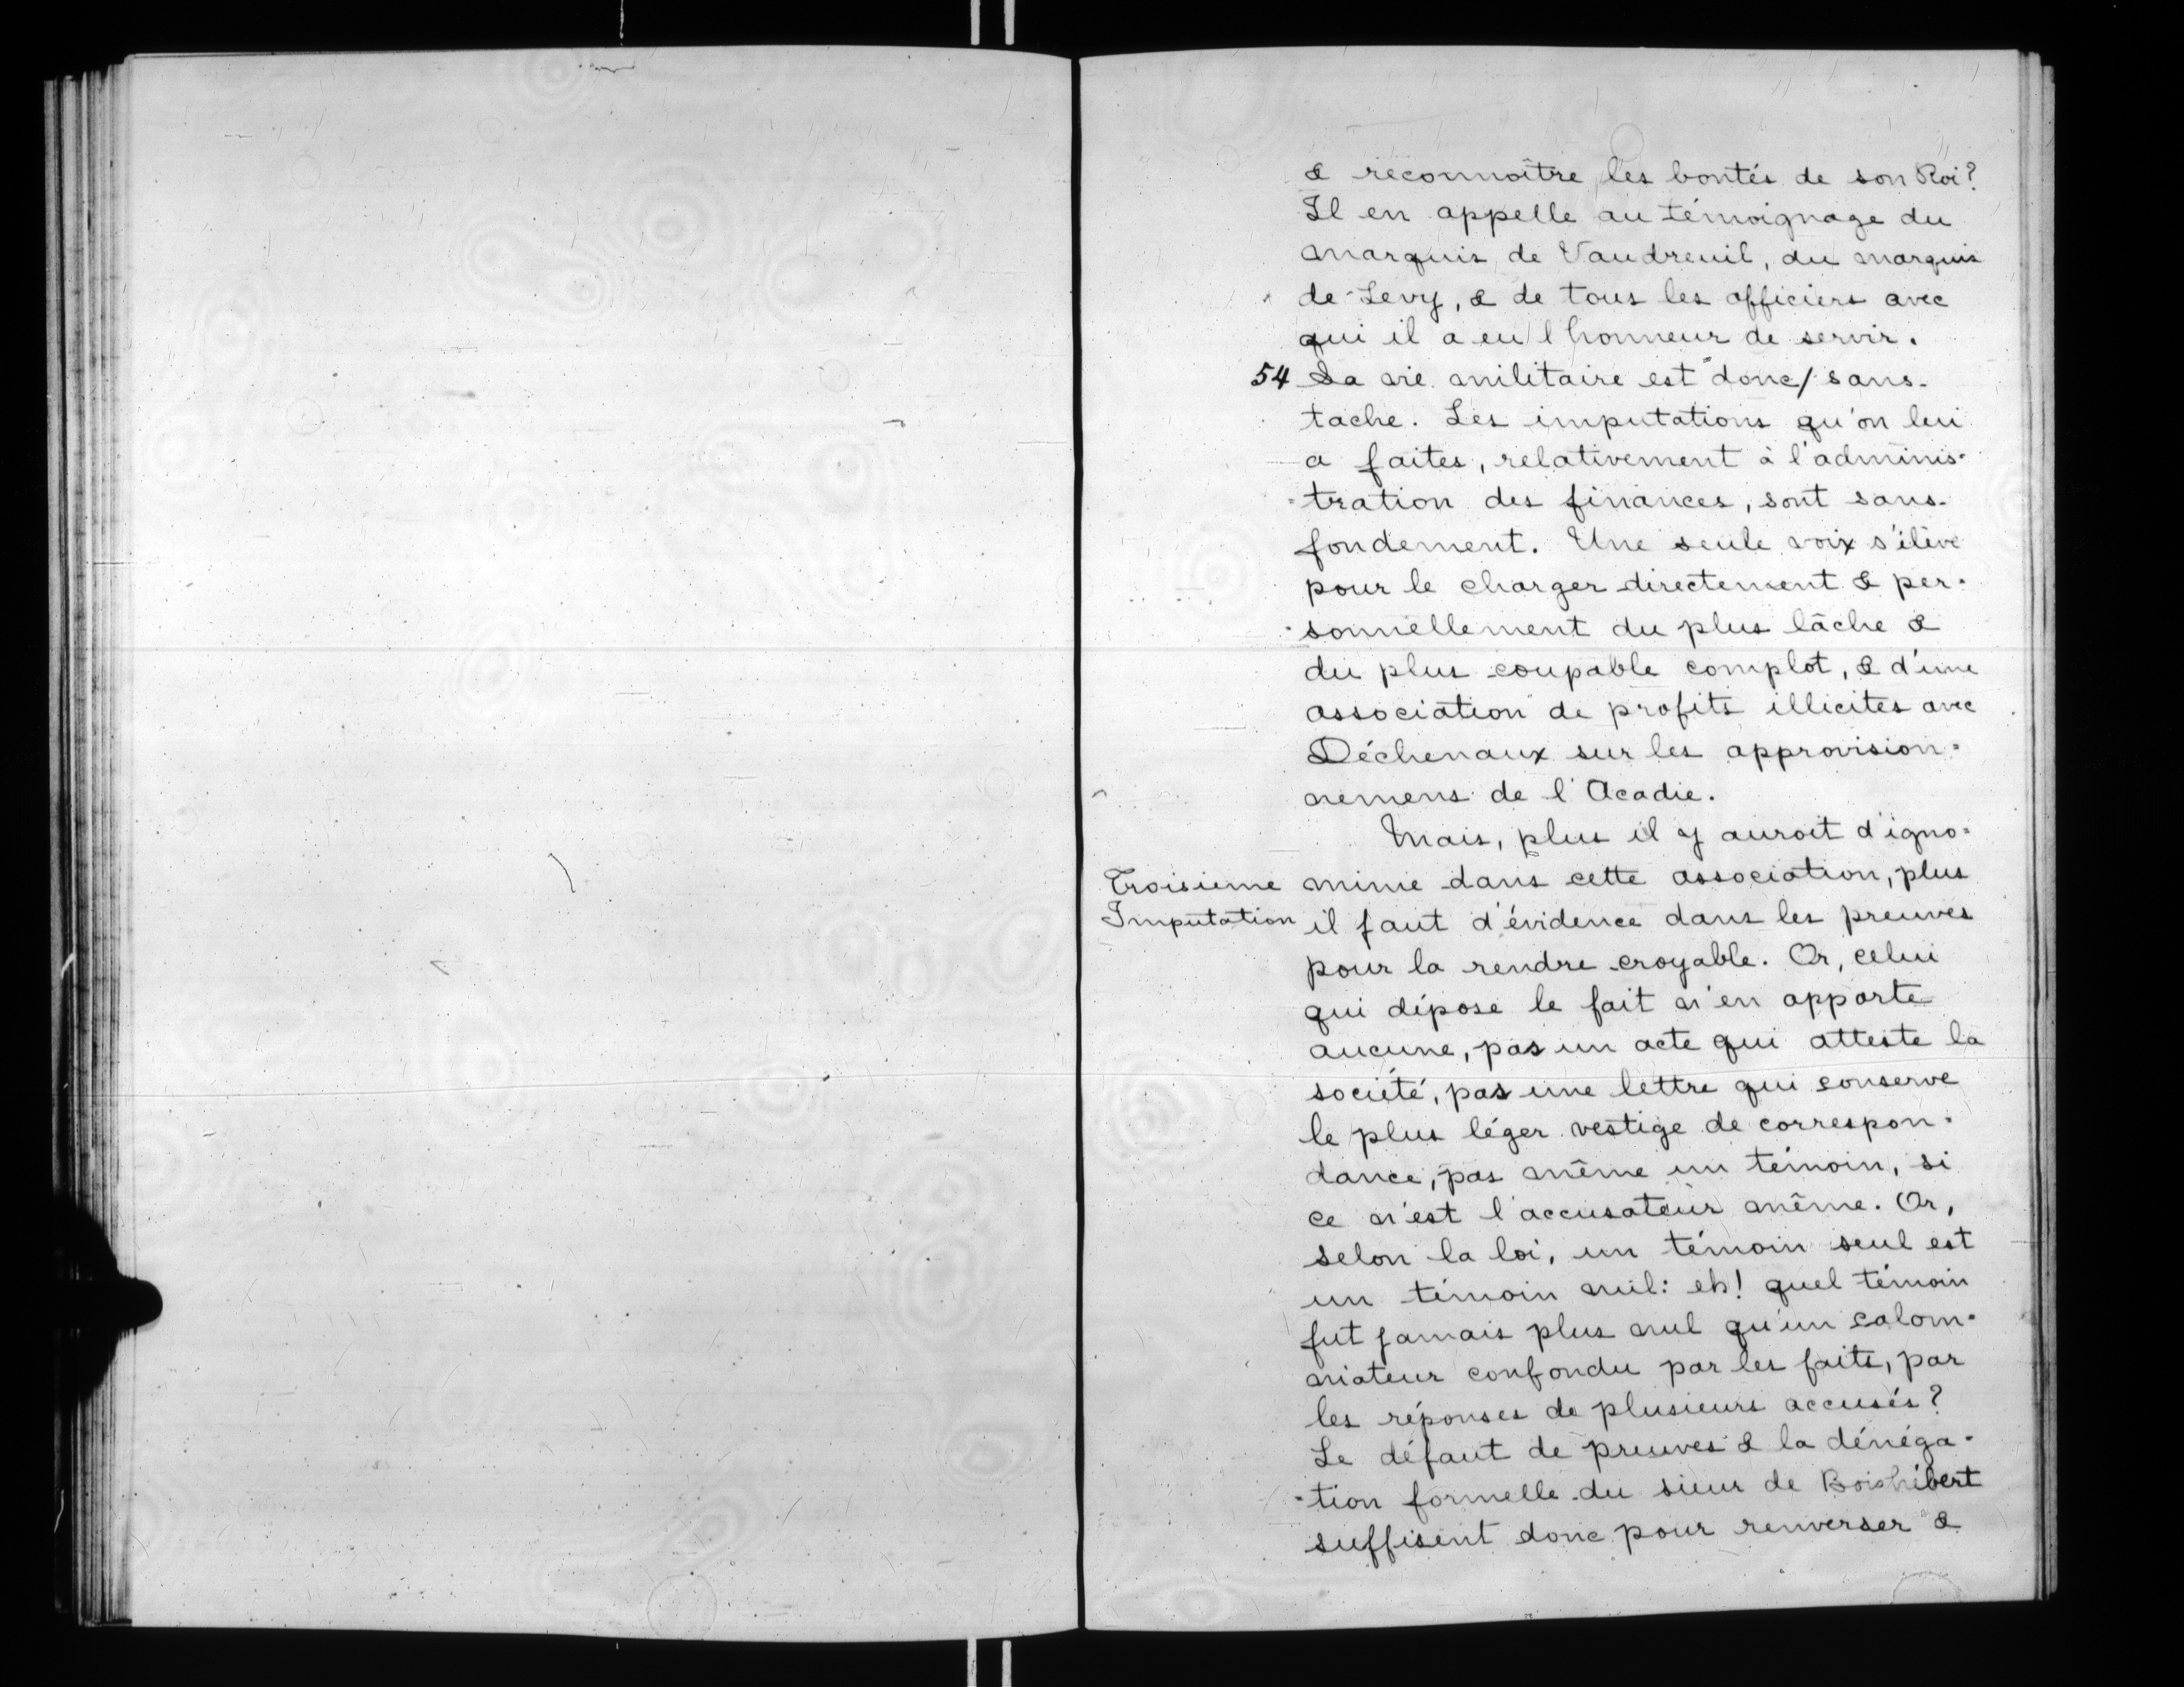 & reconnoître les bontés de son Roi?
Il en appelle au témoignage du
marquis de Vaudreuil, du marquis
de Levy, & de tous les officiers avec
qui il a eu l'honneur de servir.
54 Sa vie militaire est donc/sans-
tache. Les imputations qu'on lui
a faites, relativement à l'adminis-
-tration des finances, sont sans-
fondement. Une seule voix s'élève
pour le charger directement & per-
-sonnellement du plus lâche &
du plus coupable complot, & d'une
association de profits illicites avec
Déchenaux sur les approvision-
nemens de l'Acadie.
Mais, plus il y auroit d'igno-
Troisieme
Imputation
minie dans cette association, plus
il faut d'évidence dans les preuves
pour la rendre croyable. Or, celui
qui dépose le fait n'en apporte
aucune, pas un acte qui atteste la
société, pas une lettre qui conserve
le plus léger vestige de correspon-
dance, pas même un témoin, si
ce n'est l'accusateur même. Or,
selon la loi, un témoin seul est
un témoin nul: eh! quel témoin
fut jamais plus nul qu'un calom-
niateur confondu par les faits, par
les réponses de plusieurs accusés?
Le défaut de preuves & la dénéga-
-tion formelle du sieur de Boishébert
suffisent donc pour renverser &